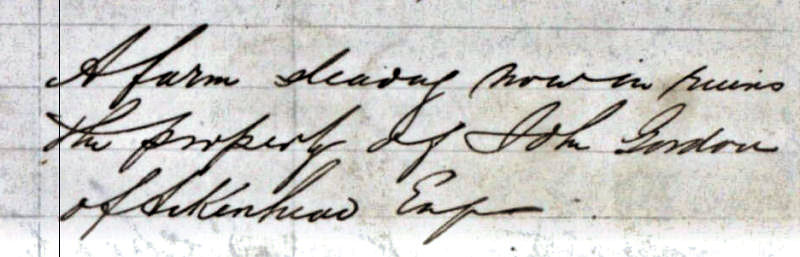 A farm steading now in ruins
the property of John Gordon
of Aikenhead Esq